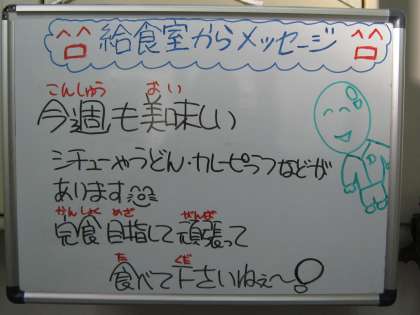 給食室からメッセージ
こんしゅう おい
今週も美味しい
シチューやうどん・カレーピラフなどが
あります
かんしょく めざ がんば
完食目指して頑張って
た くだ
食べて下さいねぇ〜!